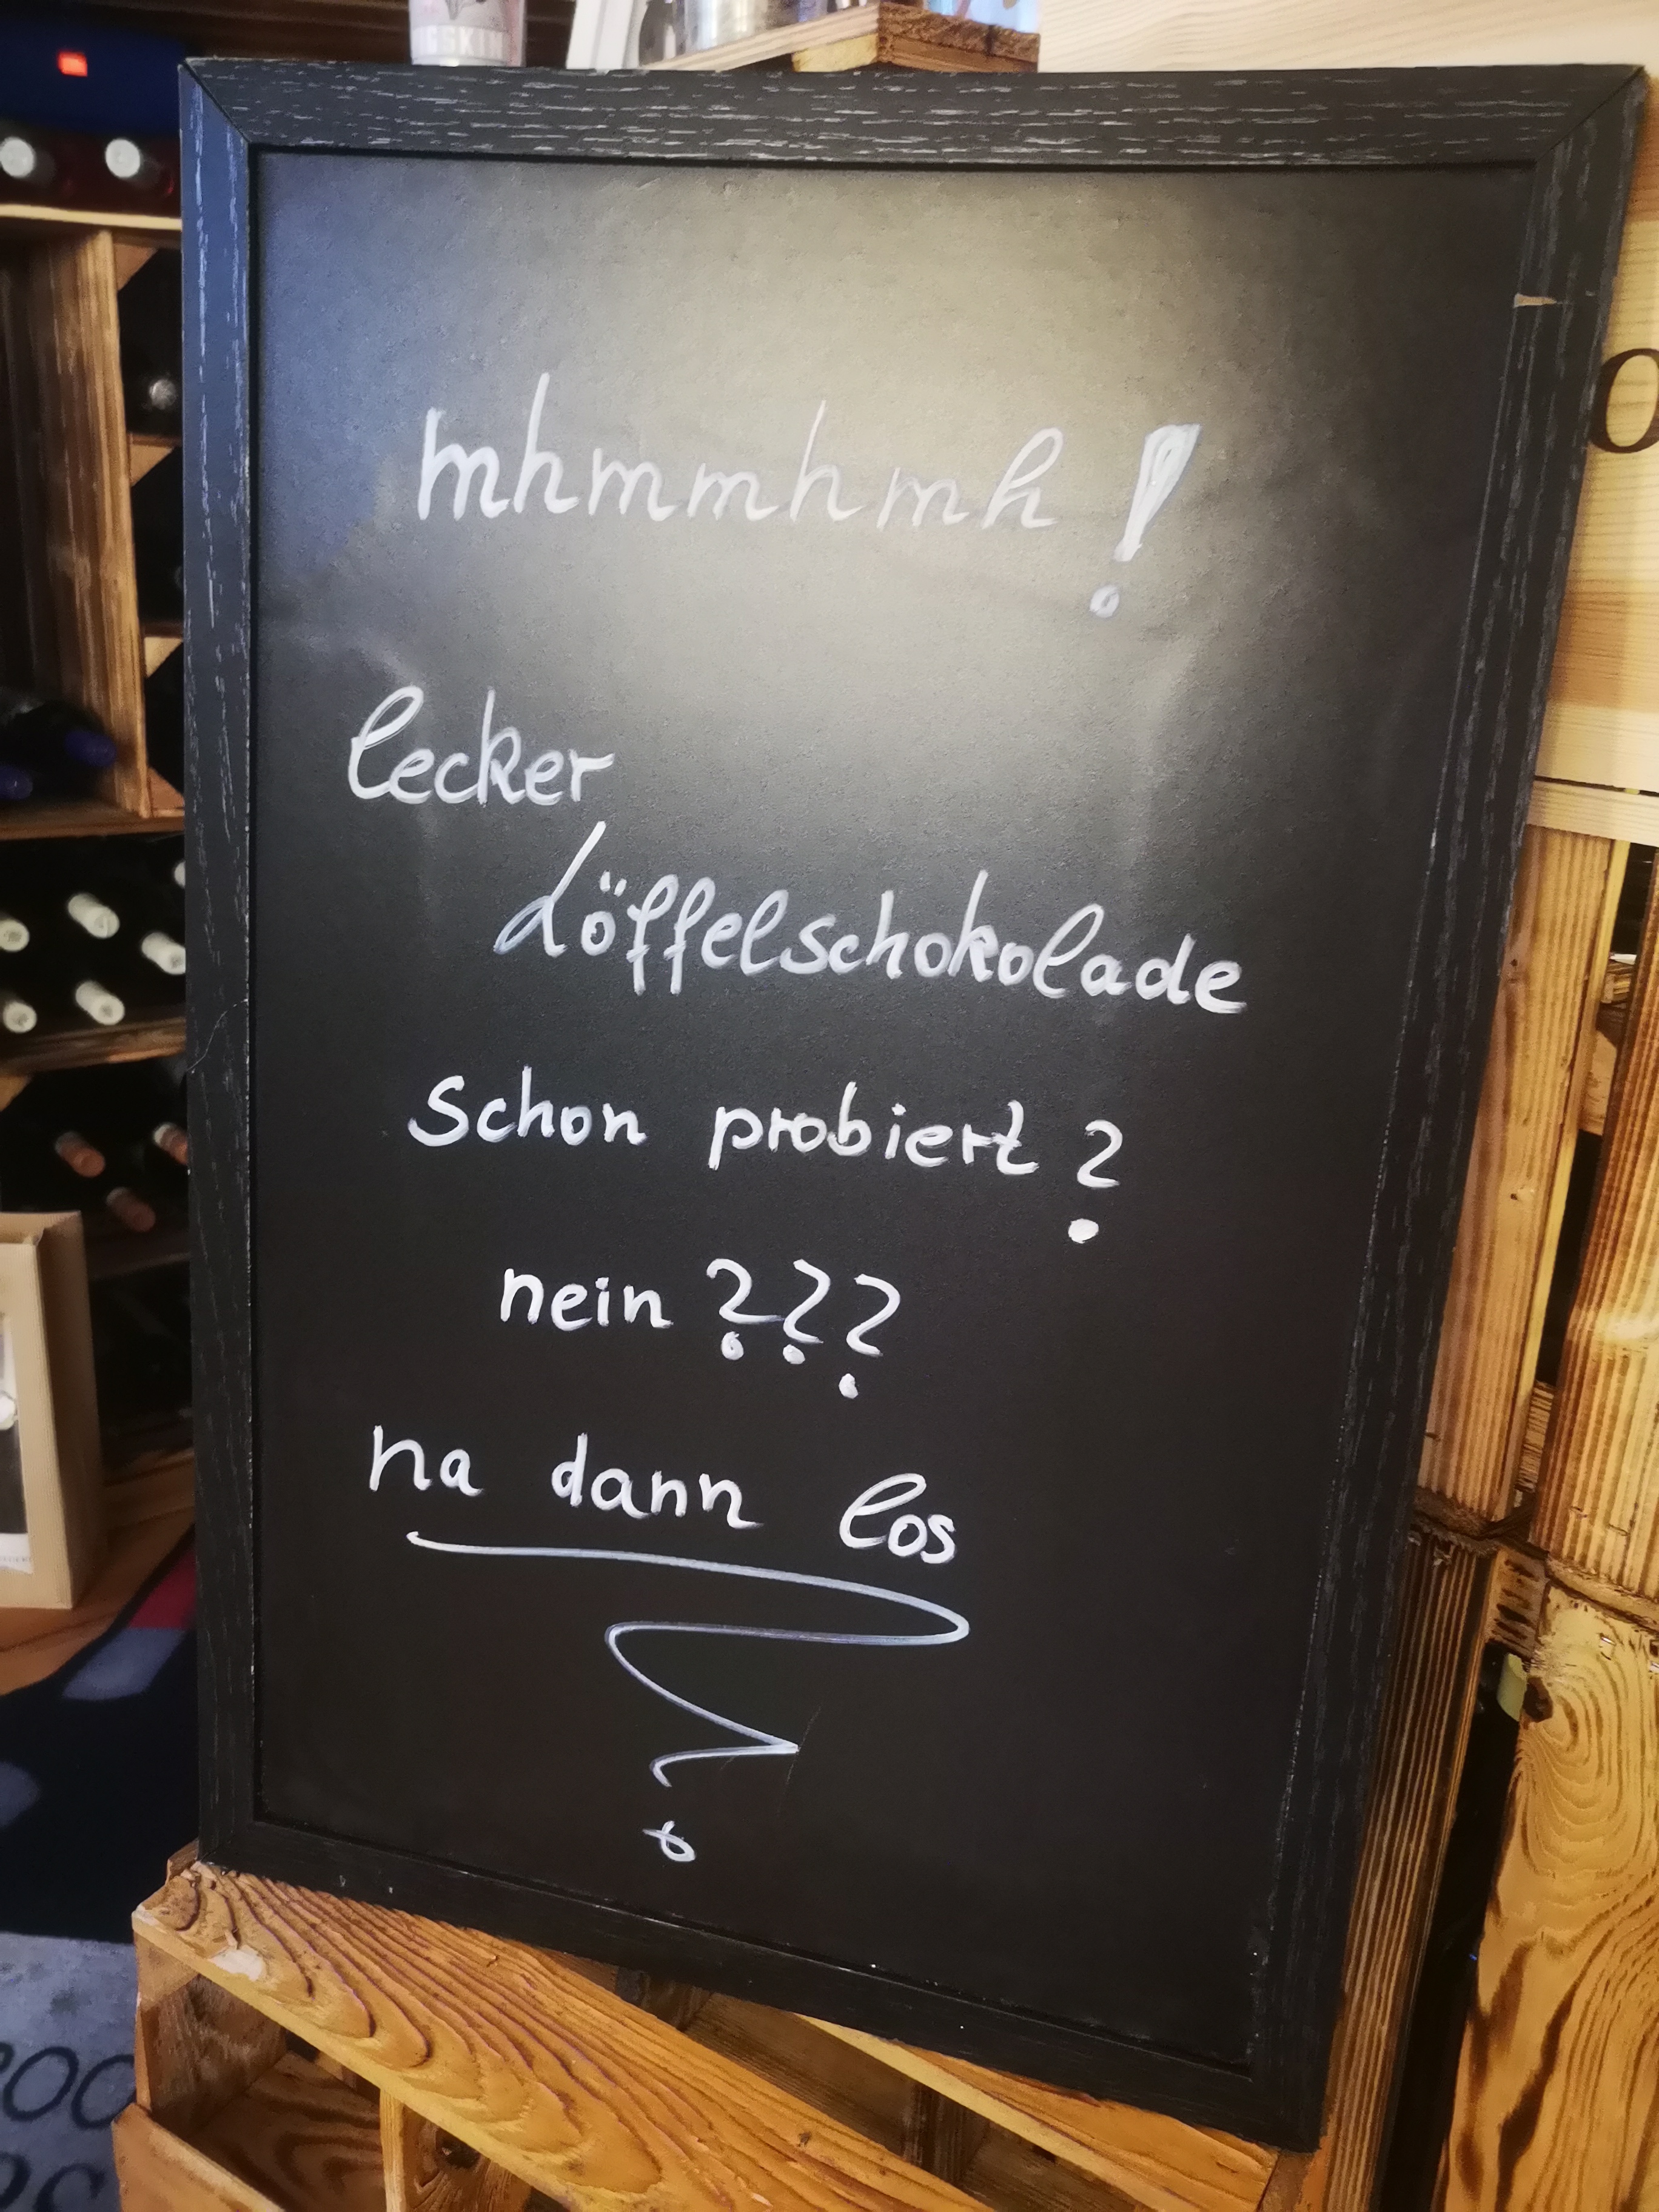 GSKIN
mhmmhmh!
lecker
Löffelschokolade
schon probiert?
nein???
na dann los